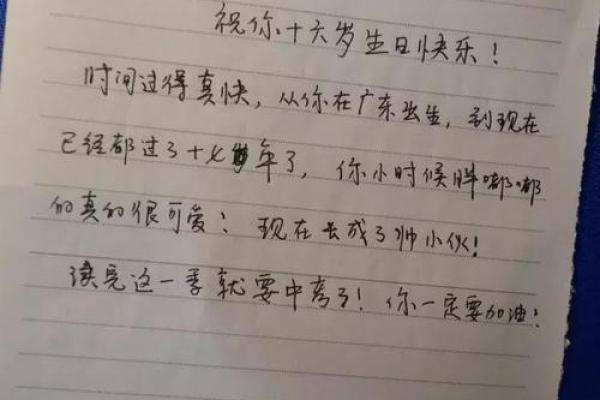 祝你十六岁生日快乐!
时间过得真快,从你在广东出生,到现在
已经都过了十七年了,你小时候胖嘟嘟
的真的很可爱!现在长成了帅小伙!
读完这一季就要中考了!你一定要加油!